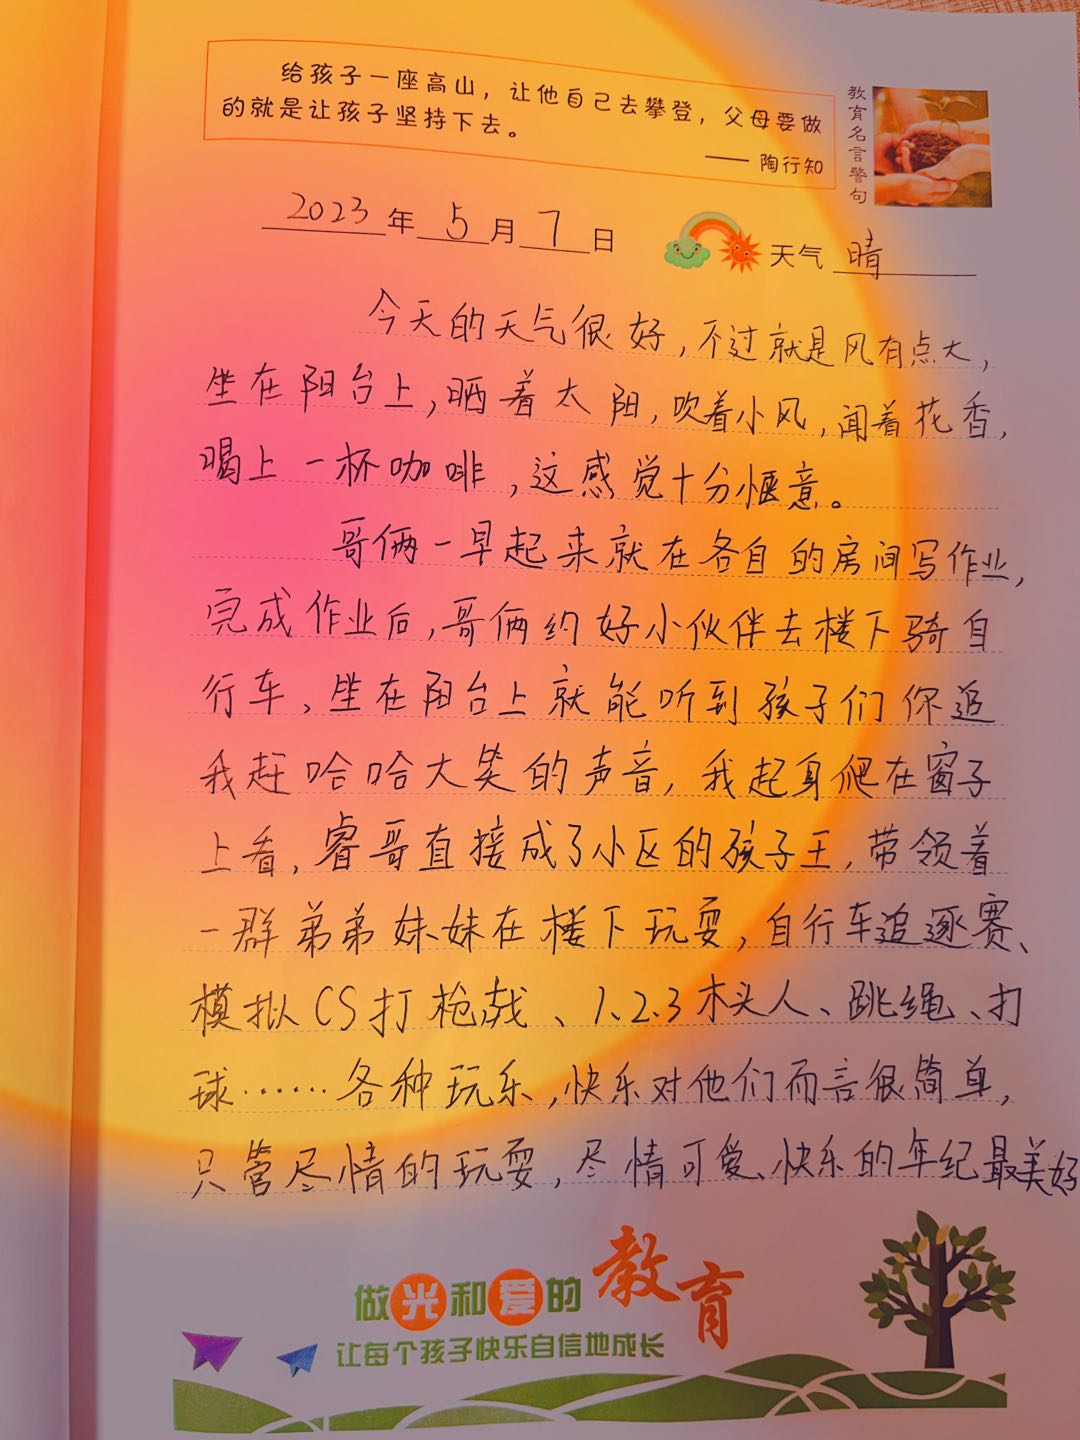 给孩子一座高山，让他自己去攀登，父母要做
的就是让孩子坚持下去。
—— 陶行知
教育名言警句
2023年 5月 7日 天气 晴
今天的天气很好，不过就是风有点大，
坐在阳台上，晒着太阳，吹着小风，闻着花香，
喝上一杯咖啡，这感觉十分惬意。
哥俩一早起来就在各自的房间写作业，
完成作业后，哥俩约好小伙伴去楼下骑自
行车、坐在阳台上就能听到孩子们你追
我赶哈哈大笑的声音，我起身爬在窗子
上看，睿哥直接成了小区的孩子王，带领着
一群弟弟妹妹在楼下玩耍，自行车追逐赛、
模拟CS打枪战、1.2.3木头人、跳绳、打
球……各种玩乐，快乐对他们而言很简单，
只管尽情的玩耍，尽情可爱、快乐的年纪最美好
做光和爱的教育
让每个孩子快乐自信地成长